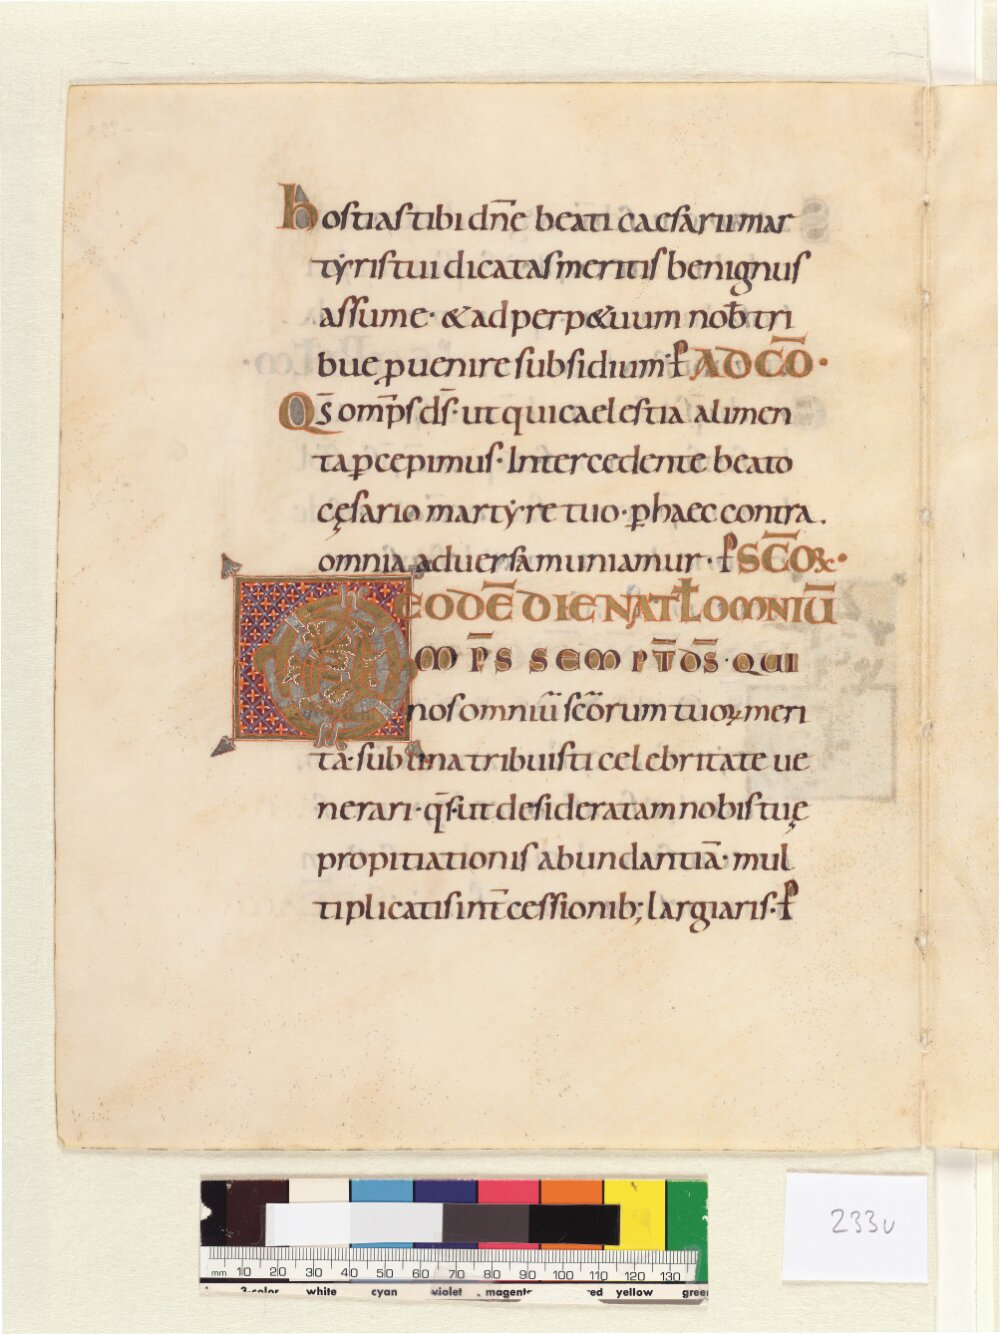 Hostias tibi dn̄e beati caesarii mar
tẏris tui dicatas meritis benignus
assume· & ad perp&uum nob̄ tri
bue ꝑuenire subsidium· ꝑ AD CŌ·
Qs̄ omp̄s ds̄· ut qui caelestia alimen
ta ꝑcepimus· Intercedente beato
cęsario martẏre tuo· ꝑ haec contra
omnia aduersa muniamur· ꝑ SC̄OꝜ·
EODĒ DIE NAT̄L OMNIŪ
OMP̄S SEMPT̄ DS̄· QUI
nos omniū sc̄orum tuoꝝ meri
ta· sub una tribuisti celebritate ue
nerari· qs̄· ut desideratam nobis tuę
propitiationis abundantiā· mul
tiplicatis int̄cessionib; largiaris· ꝑ
233v
mm 10 20 30 40 50 60 70 80 90 100 110 120 130
3-color white cyan violet magenta red yellow green